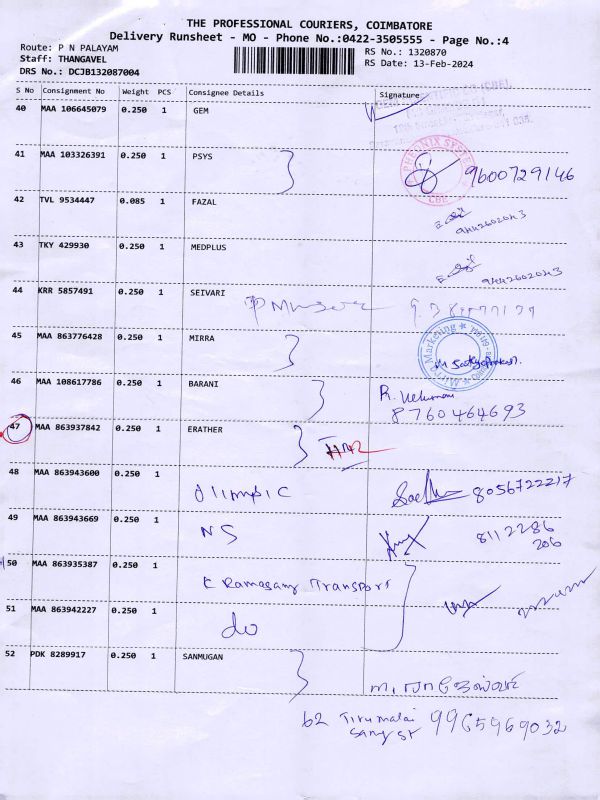 THE PROFESSIONAL COURIERS, COIMBATORE
Delivery Runsheet - MO - Phone No.:0422-3505555 - Page No.:4
Route: P N PALAYAM
RS No.: 1320870
Staff: THANGAVEL
RS Date: 13-Feb-2024
DRS No.: DCJB132087004
S No Consignment No Weight PCS Consignee Details Signature
40 MAA 106645079 0.250 1 GEM
41 MAA 103326391 0.250 1 PSYS 9600729146
PHEENIX SYSTEM
CBE
42 TVL 9534447 0.085 1 FAZAL
9442602043
43 TKY 429930 0.250 1 MEDPLUS
9442602043
44 KRR 5857491 0.250 1 SEIVARI
45 MAA 863776428 0.250 1 MIRRA
Mirra Marketing
46 MAA 108617786 0.250 1 BARANI
R.
8760464693
47 MAA 863937842 0.250 1 ERATHER
48 MAA 863943600 0.250 1 Olimpic 8056722217
49 MAA 863943669 0.250 1 NS 8112286
206
50 MAA 863935387 0.250 1 K Ramasamy Transport
51 MAA 863942227 0.250 1 do
52 PDK 8289917 0.250 1 SANMUGAN
62 Tirumalai 9965969032
Samy St